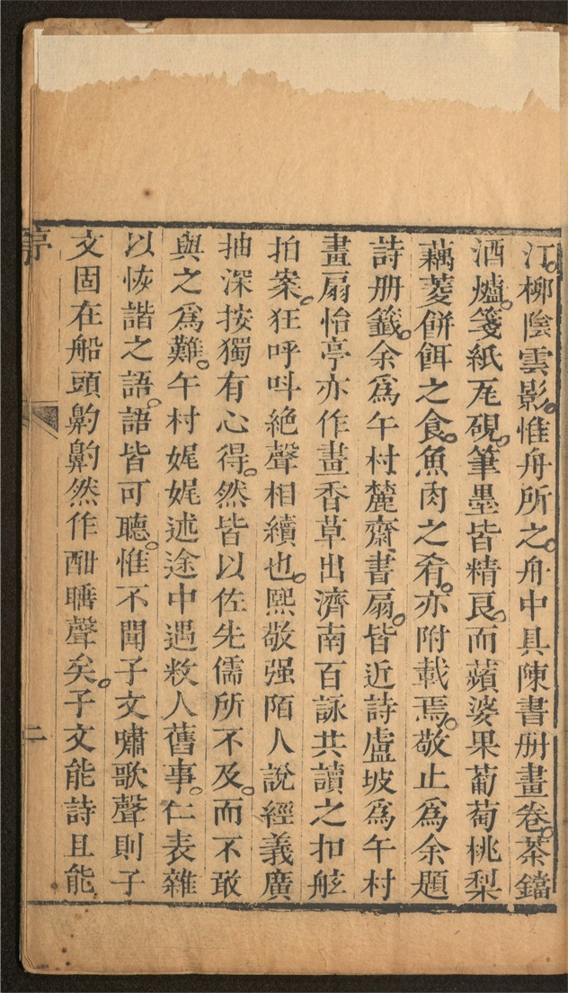 汀。柳陰雲影。惟舟所之。舟中具陳書冊畫卷。茶鐺
酒爐。箋紙瓦硯。筆墨皆精良。而蘋婆果葡萄桃梨
藕菱餅餌之食。魚肉之肴。亦附載焉。敬止爲余題
詩册籤。余爲午村麓齋書扇。皆近詩盧坡爲午村
畫扇怡亭亦作畫香草出濟南百詠共讀之扣舷
拍案。狂呼呌絶聲相續也。熙敬强陌人說經義廣
抽深按獨有心得。然皆以佐先儒所不及。而不敢
與之爲難。午村娓娓述途中遇救人舊事。仁表雜
以恢諧之語。語皆可聽。惟不聞子文嘯歌聲則子
文固在船頭齁齁然作酣睡聲矣。子文能詩且能
亭
二